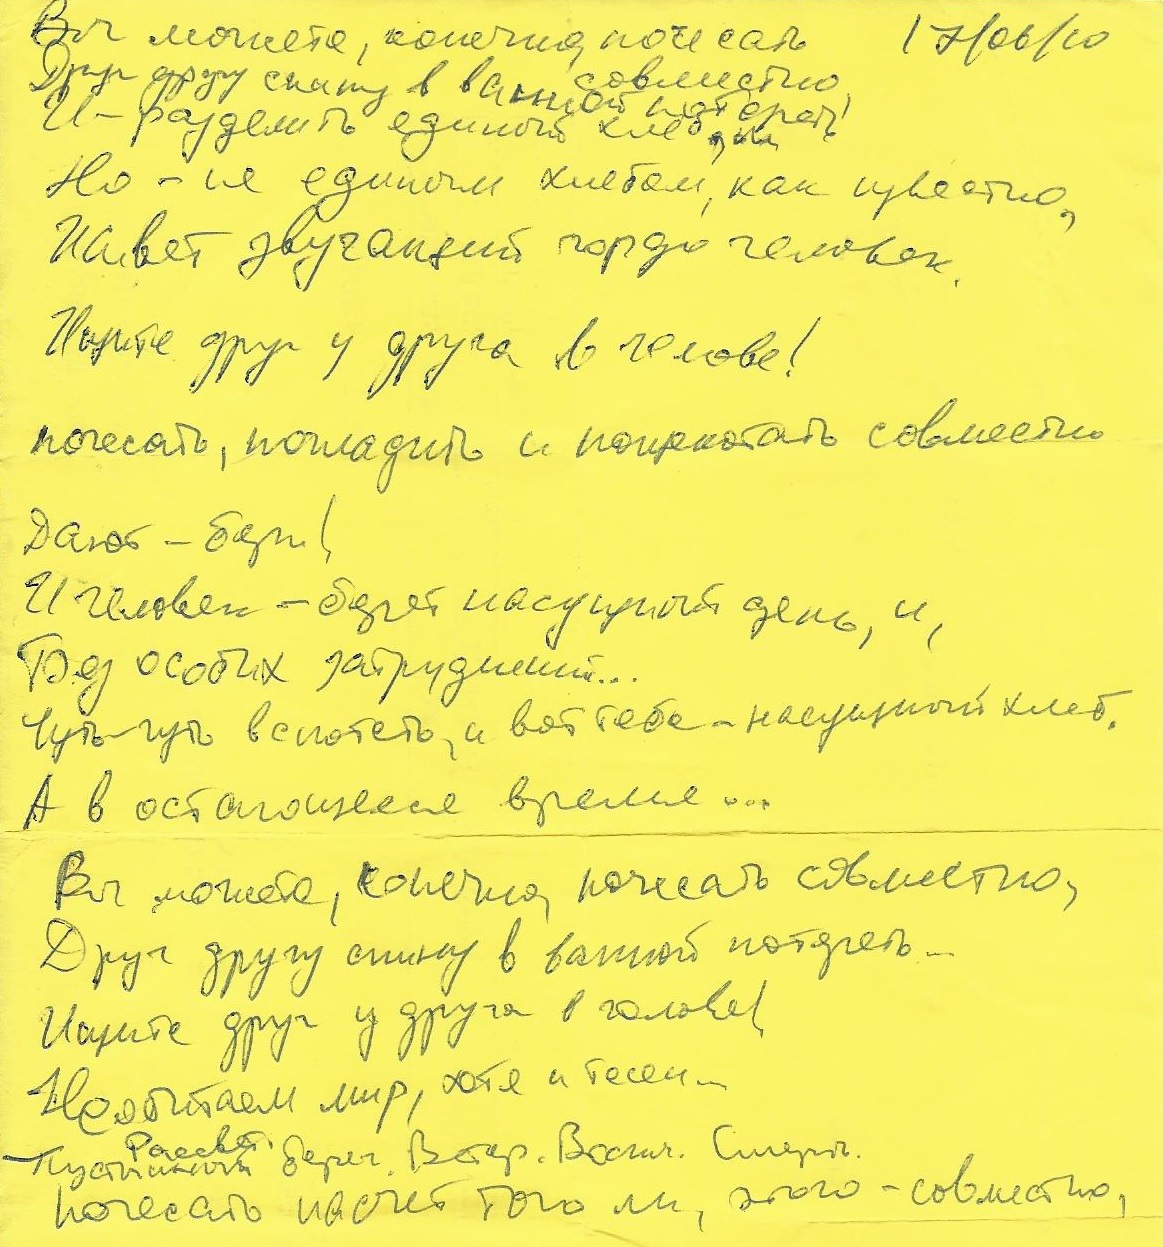 Вы можете, конечно, почесать 17/06/10
совместно,
Друг другу спину в ванной потереть!
И – разделить единый хлеб
Но – не единым хлебом, как известно,
Живет звучащий гордо человек.
Ищите друг у друга в голове!
почесать, погладить и совместно
Дают – бери!
И человек – берет насущный день, и,
Без особых затруднений...
Чуть-чуть вспотеть, и вот тебе – насущный хлеб.
А в остающееся время...
Вы можете, конечно, почесать совместно,
Друг другу спину в ванной потереть...
Ищите друг у друга в голове!
Необитаем мир, хотя и тесен...
Рассвет.
– Пустынный берег. Ветер. Смерть.
Почесать насчет того ли, этого – совместно,